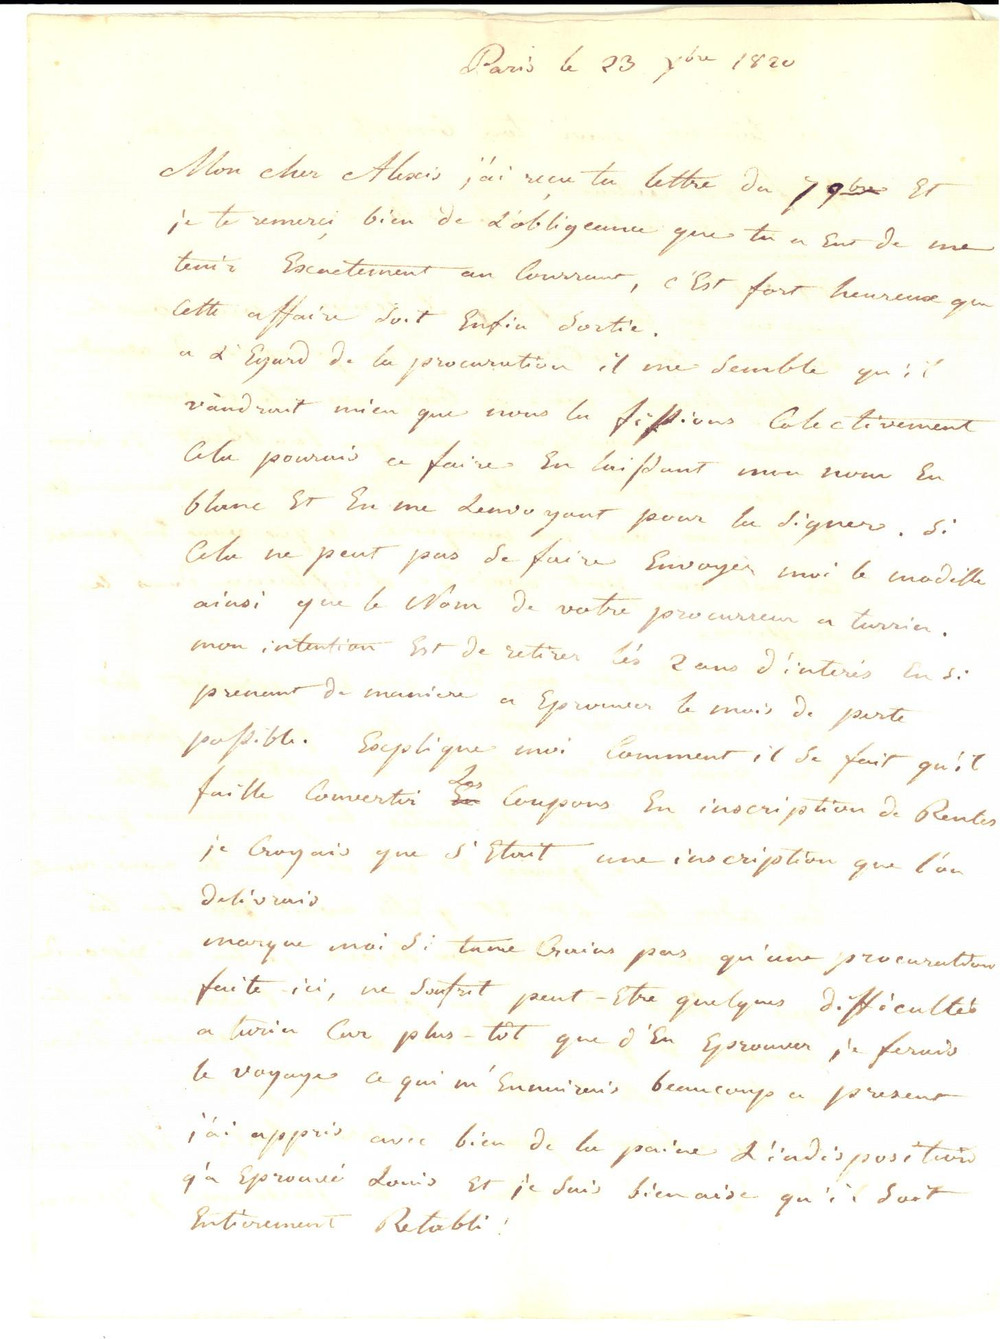 Paris le 23 xbre 1820
Mon cher Alexis j'ai reçu ta lettre du 7 9bre Et
je te remerci bien de L'obligeance que tu a Eue de me
tenir Exactement au Courrant, c'Est fort heureux que
Cette affaire Soit Enfin Sortie.
a L'Egard de la procuration il me Semble qu'il
vaudrait mieu que nous la fissions Colectivement
Cela pourais ce faire En laissant mon nom En
blanc Et En me Lenvoyant pour la Signer. Si
Cela ne peut pas Se faire Envoyez moi le modelle
ainsi que le Nom de votre procurreur a turrin.
mon intention Est de retirer lés 2 ans d'interés En Si
prenant de maniere a Eprouver le mois de perte
possible. Explique moi Comment il Se fait qu'il
faille Convertir Les Coupons En inscription de Rentes
je Croyais que s'Etait une inscription que l'on
delivrais
marque moi Si tu ne Crains pas qu'une procuration
faite ici, ne Soufrit peut-Etre quelques difficultés
a turin Car plus-tôt que d'En Eprouver je ferais
le voyage ce qui m'Ennuirais beaucoup a present
j'ai appris avec bien de la paine L'indisposition
q'a Eprouvé Louis Et je Suis bienaise qu'il Soit
Entierement Retabli!